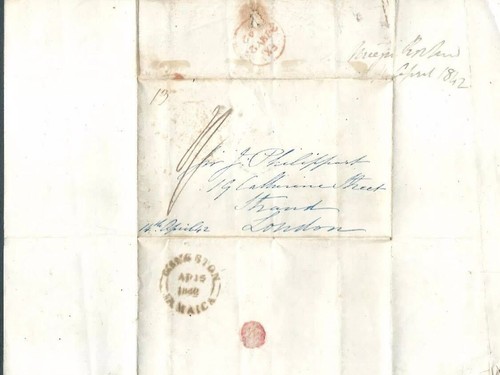 April 1842
13
Sir J. Philippart
19 Catherine Street
Strand
London
14th April 42
KINGSTON
AP 15
JAMAICA